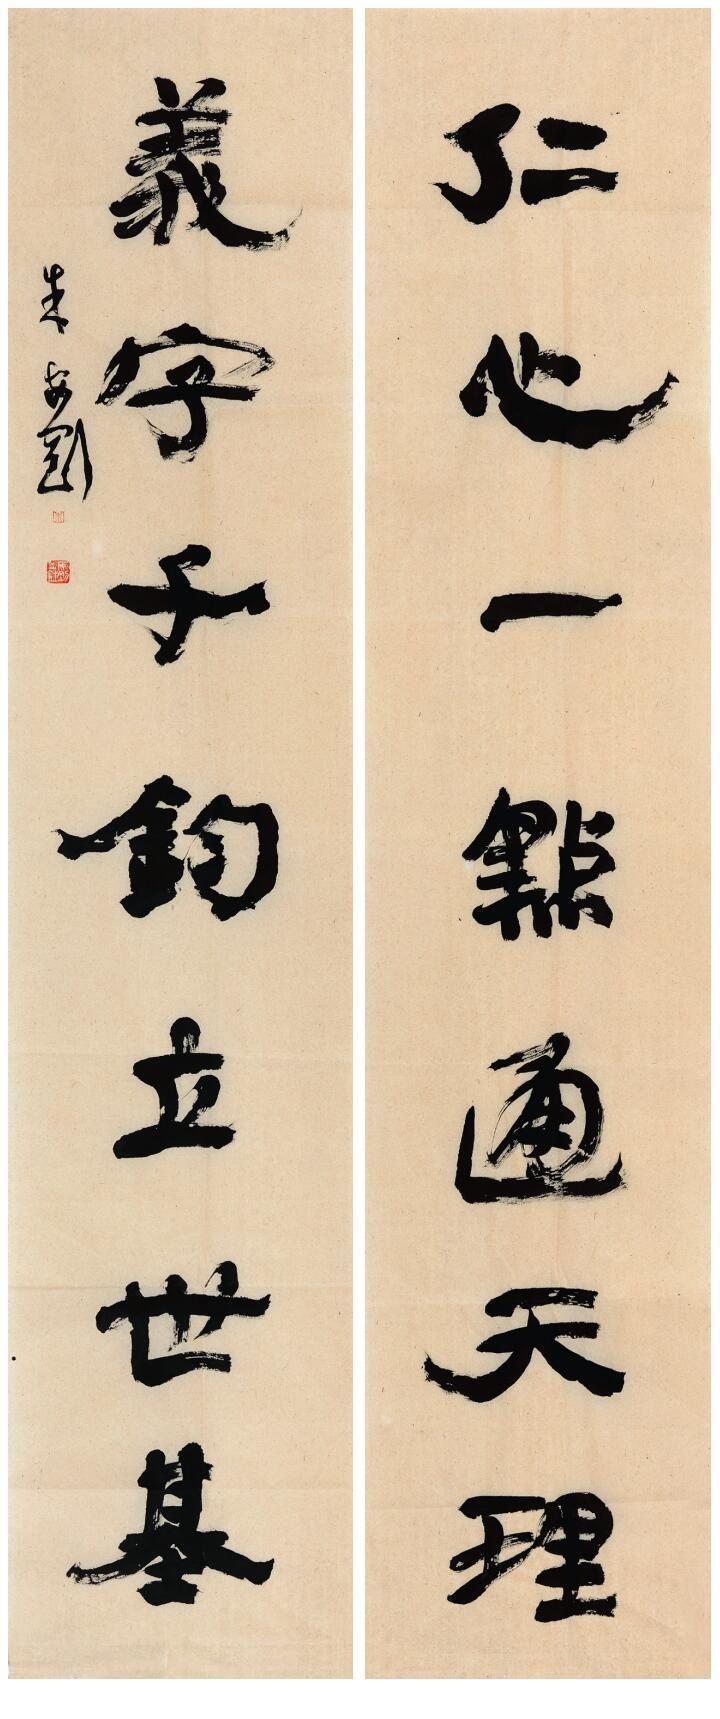 仁心一點通天理
義字千鈞立世基
朱安剛